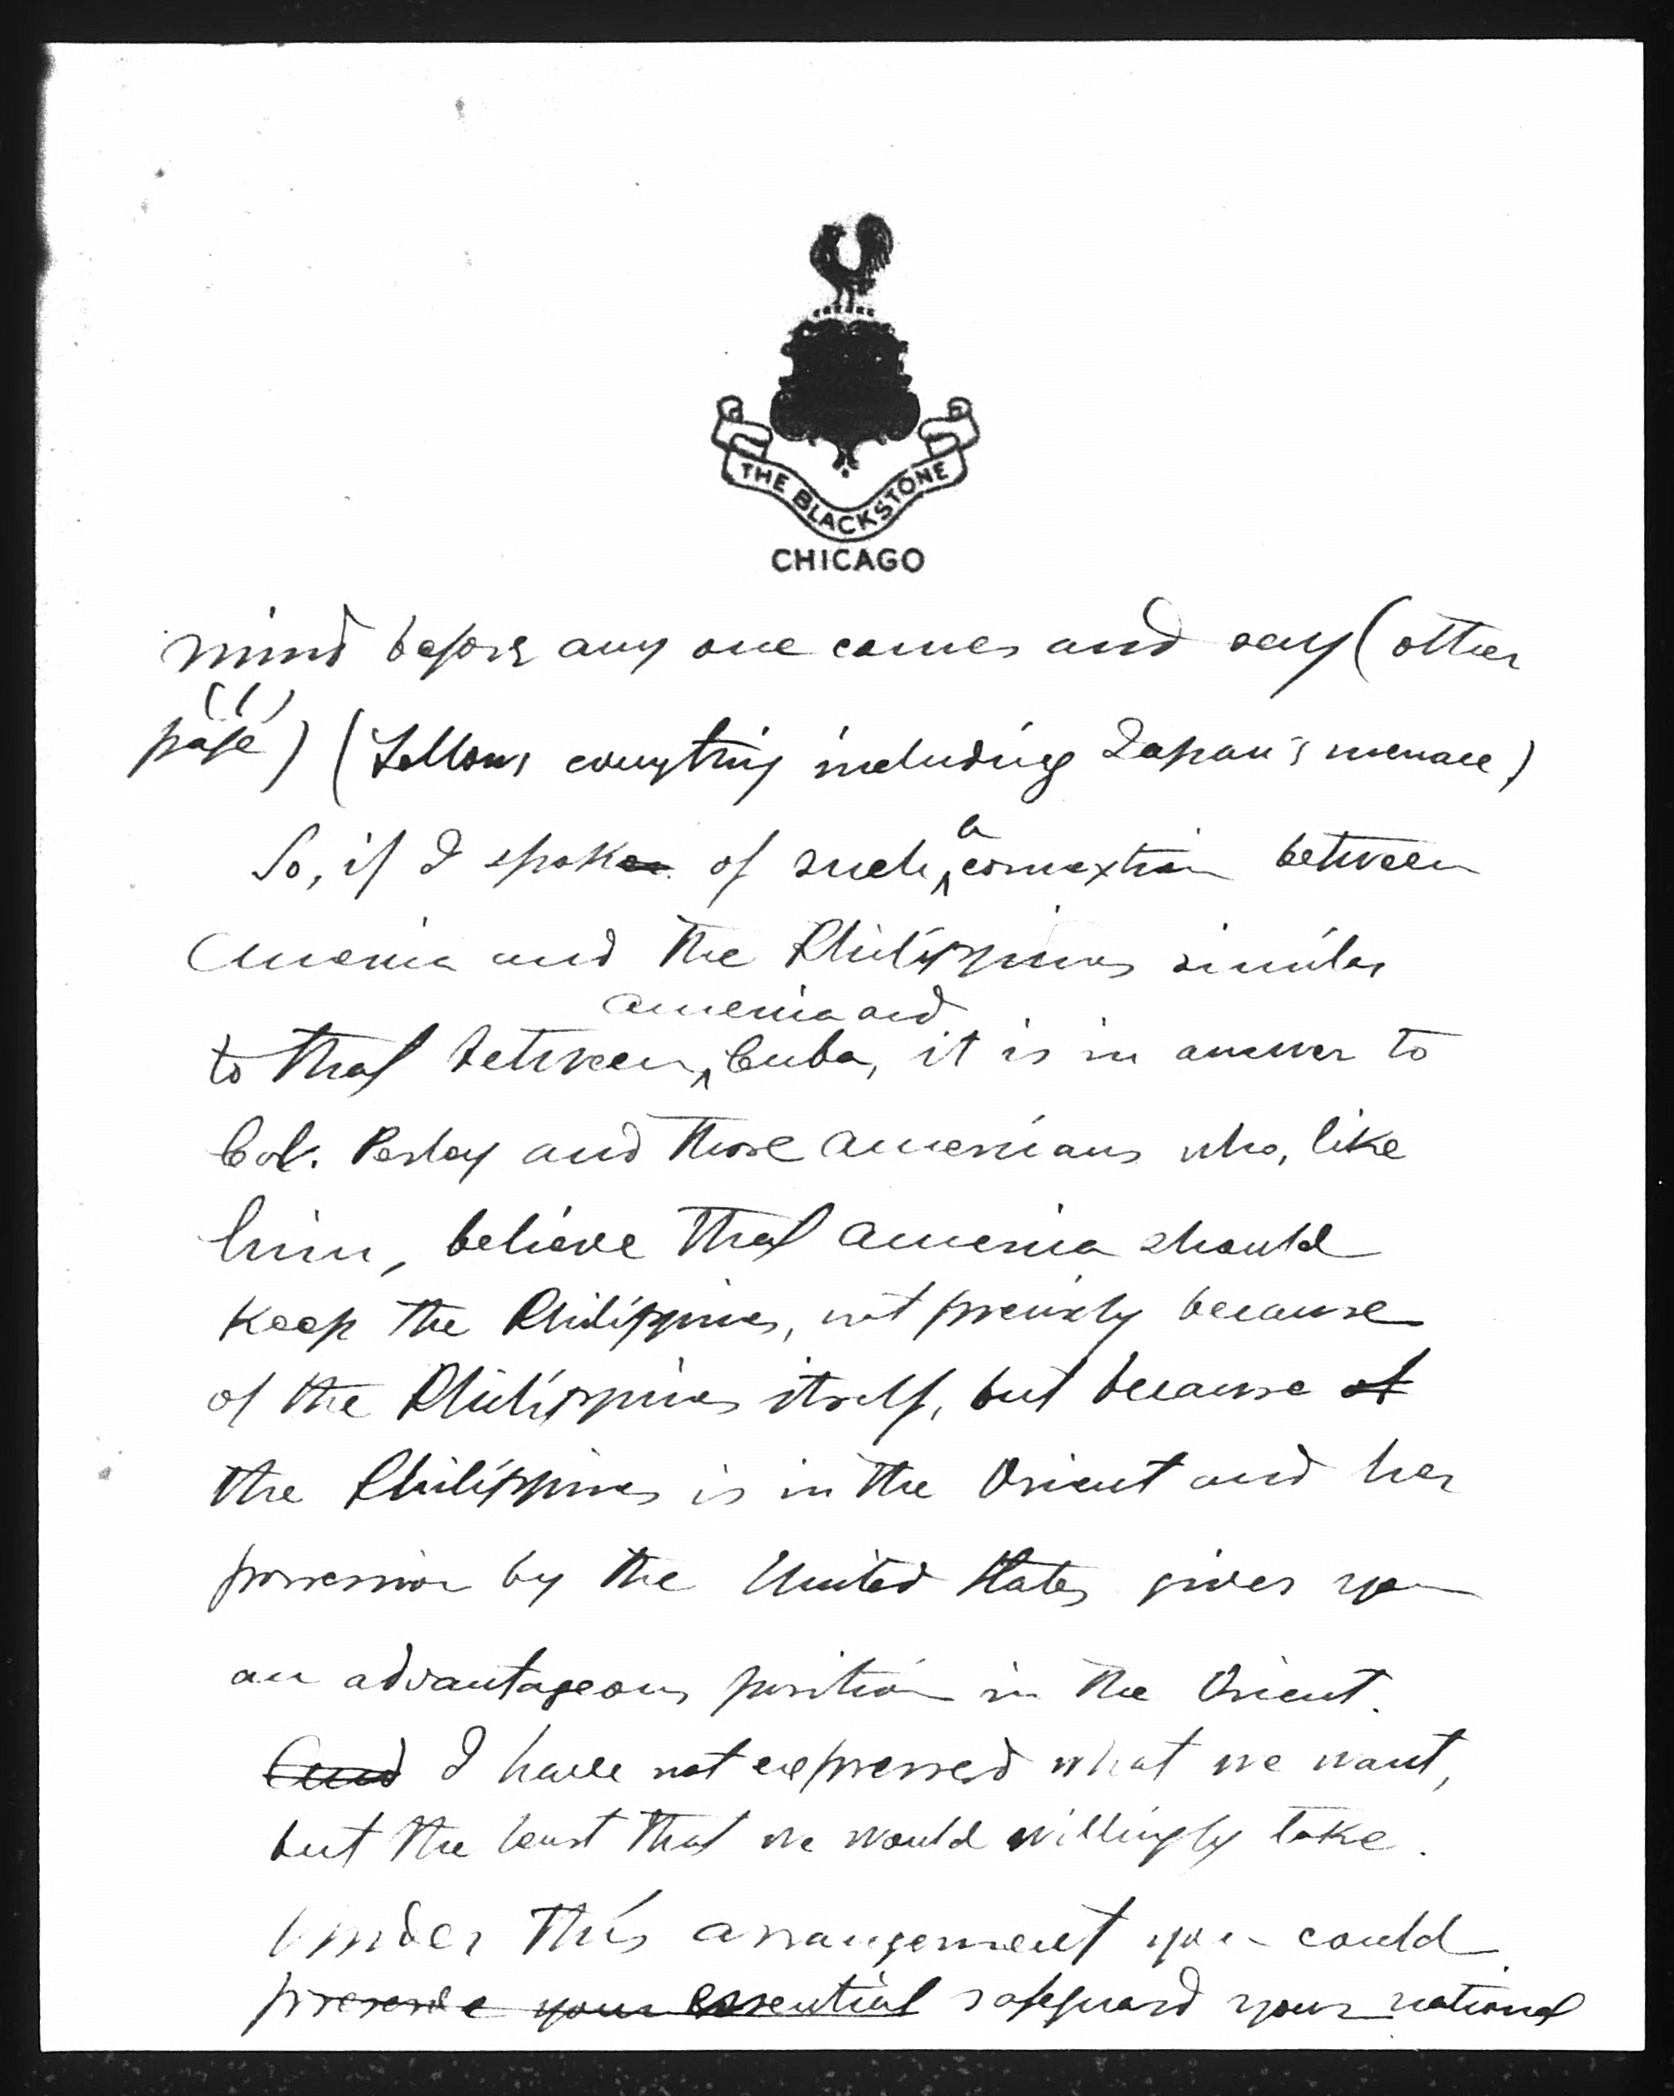 THE BLACKSTONE
CHICAGO
mind before any one comes and say (other
(1)
page) (Follows everything including Japan's menace)
So, if I spoke of such a connextion between
America and the Philippines similar
to that between America and Cuba, it is in answer to
Col. and those Americans who, like
him, believe that America should
keep the Philippines, not precisely because
of the Philippines itself, but because of
the Philippines is in the Orient and her
possession by the United States gives you
an advantageous position in the Orient.
And I have not expressed what we want,
but the least that we would willingly take.
Under this arrangement you could
preserve your essential safeguard your national